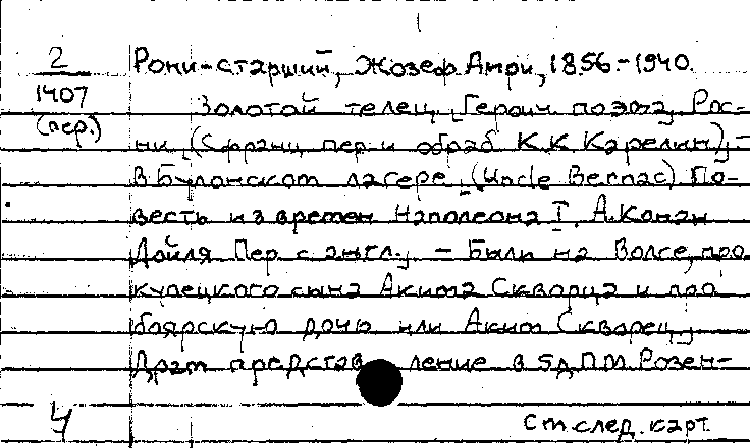 2
1407
(пер.)
Рони-старший, Жозеф Анри, 1856-1940.
Золотой телец. [Героич. поэма. Рос-
ни. (С франц. пер. и обраб. К.К. Карелин).] -
В Булонском лагере. [(Uncle Bernac) По-
весть из времен Наполеона I. А. Конан
Дойля. Пер. с англ.] - Были на Волге, про
купецкого сына Акима Скворца и про
боярскую дочь или Аким Скворец. [
Драм. представление в 5 д. П.М. Розен-
4
См. след. карт.